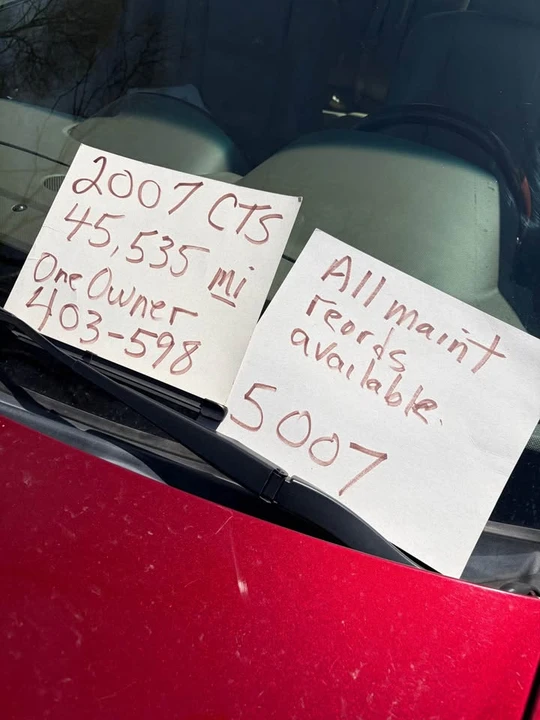 2007 CTS
45,535 mi
One Owner
403-598
All maint
reords
available.
5007